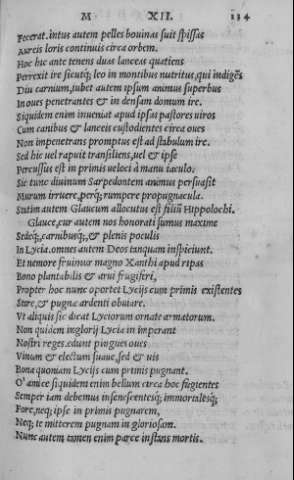 M XII. 134
Fecerat. intus autem pelles bouinas suit spissas
Aureis loris continuis circa orbem.
Hoc hic ante tenens duas lanceas quatiens
Perrexit ire sicutq; leo in montibus nutritus, qui indigēs
Diu carnium, iubet autem ipsum animus superbus
In oues penetrantes & in densam domum ire.
Siquidem enim inueniat apud ipsas pastores uiros
Cum canibus & lanceis custodientes circa oues
Non impenetrans promptus est ad stabulum ire.
Sed hic uel rapuit transiliens, uel & ipse
Percussus est in primis ueloci à manu iaculo.
Sic tunc diuinum Sarpedontem animus persuasit
In murum irruere, perq; rumpere propugnacula.
Statim autem Glaucum allocutus est filiū Hippolochi.
Glauce, cur autem nos honorati sumus maxime
Sedeq; carnibusq;, & plenis poculis
In Lycia. omnes autem Deos tanquam inspiciunt.
Et nemore fruimur magno Xanthi apud ripas
Bono plantabilis & arui frugiferi,
Propter hoc nunc oportet Lycijs cum primis existentes
Stare, & pugnæ ardenti obuiare.
Vt aliquis sic dicat Lyciorum ornate armatorum.
Non quidem inglorij Lycia in imperant
Nostri reges. edunt pingues oues
Vinum & electum suaue, sed & uis
Bona quoniam Lycijs cum primis pugnant.
O' amice siquidem enim bellum circa hoc fugientes
Semper iam debemus insenescentesq; immortalesq;
Fore, neq; ipse in primis pugnarem,
Neq; te mitterem pugnam in gloriosam.
Nunc autem tamen enim parcæ instans mortis.